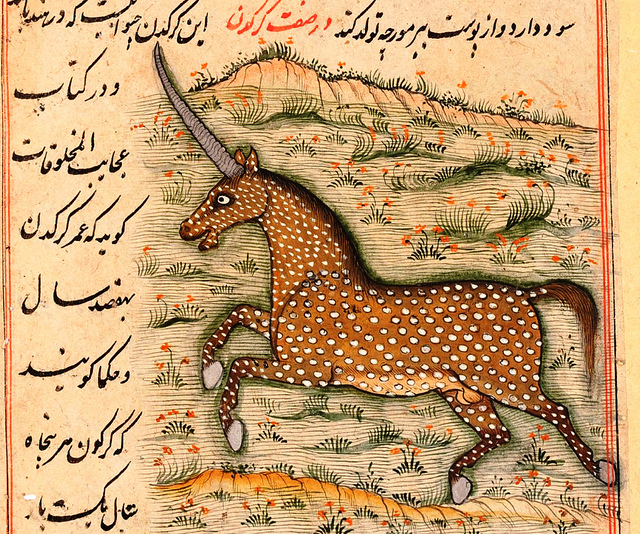 سود دارد و از پوست ببر مورچه تولد کند در صفت کرکدن این کرکدن حیوانیست که در
و در کتاب
عجایب المخلوقات
کوید که عمر کرکدن
بهفصد سال
و حکما کویند
که کرکدن هر پنجاه
سال یک بار